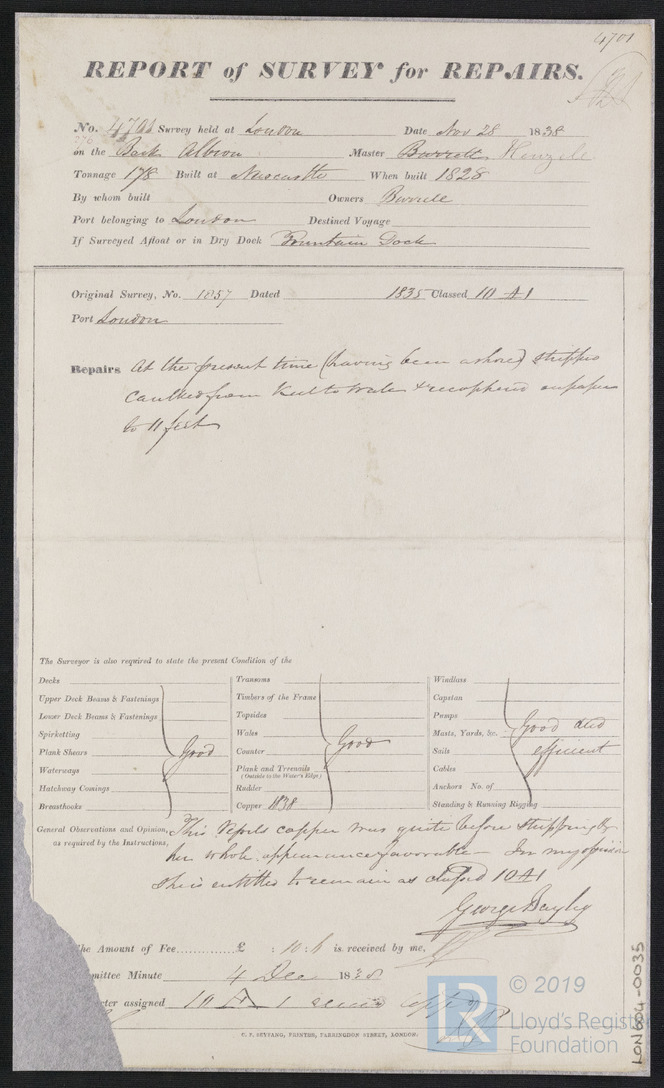 4701
REPORT of SURVEY for REPAIRS.
No. 4701 Survey held at London Date Nov 28 1838
276
on the Bark Albion Master Burrell
Tonnage 178 Built at Newcastle When built 1828
By whom built Owners Burrell
Port belonging to London Destined Voyage
If Surveyed Afloat or in Dry Dock Fountain Dock
Original Survey, No. 1857 Dated 1835 Classed 10 A1
Port London
Repairs At the present time (having been ashore) stripped
caulked from Keel to Wales & recoppered on paper
to 11 feet
The Surveyor is also required to state the present Condition of the
Decks
Upper Deck Beams & Fastenings
Lower Deck Beams & Fastenings
Spirketting
Plank Shears Good
Waterways
Hatchway Comings
Breasthooks
Transoms
Timbers of the Frame
Topsides
Wales Good
Counter
Plank and Treenails
(Outside to the Water's Edge)
Rudder
Copper 1838
Windlass
Capstan
Pumps Good and
Masts, Yards, &c. efficient
Sails
Cables
Anchors No. of
Standing & Running Rigging
General Observations and Opinion, This Vessels copper was quite before stripping &
as required by the Instructions, her whole appearance favorable – In my opinion
She is entitled to remain as classed 10 A1
George Bayley
The Amount of Fee............ £ : 10 : 6 is received by me,
mmittee Minute 4 Dec 1838
cter assigned 10 A 1
C. F. SEYFANG, PRINTER, FARRINGDON STREET, LONDON.
LR © 2019
Lloyd's Register
Foundation
LON604-0035